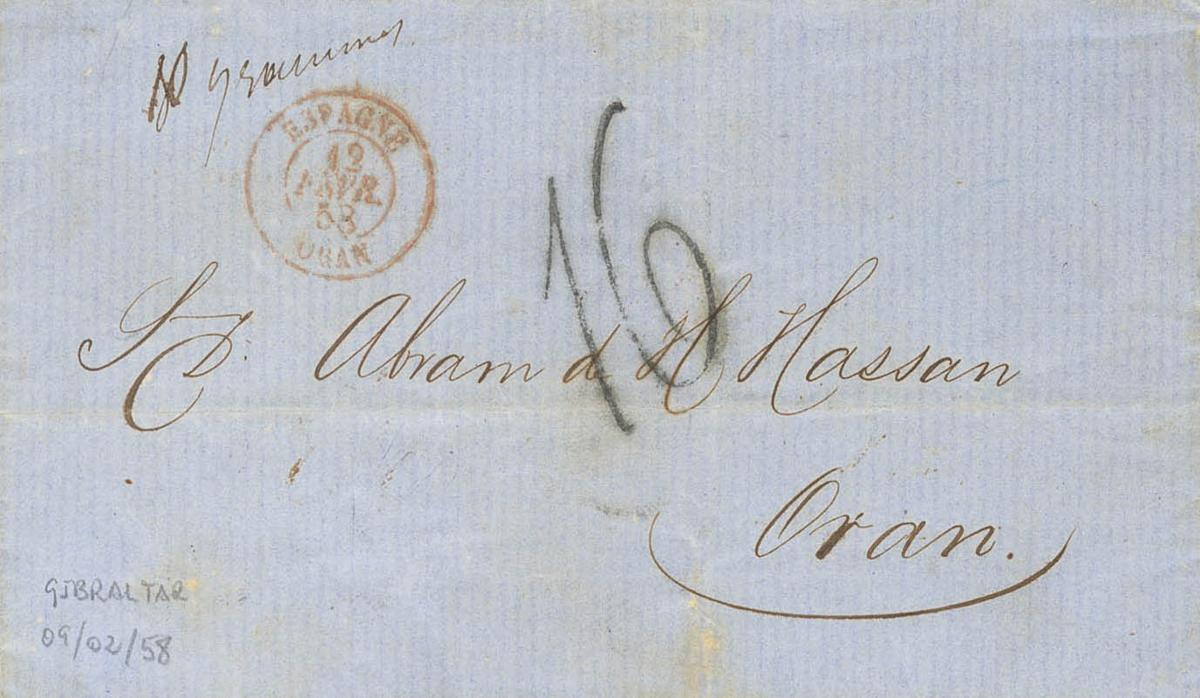 grammes
ESPAGNE
12
FEVR.
58
ORAN
16
Sr. Dn. Abram d H Hassan
Oran.
GIBRALTAR
09/02/58